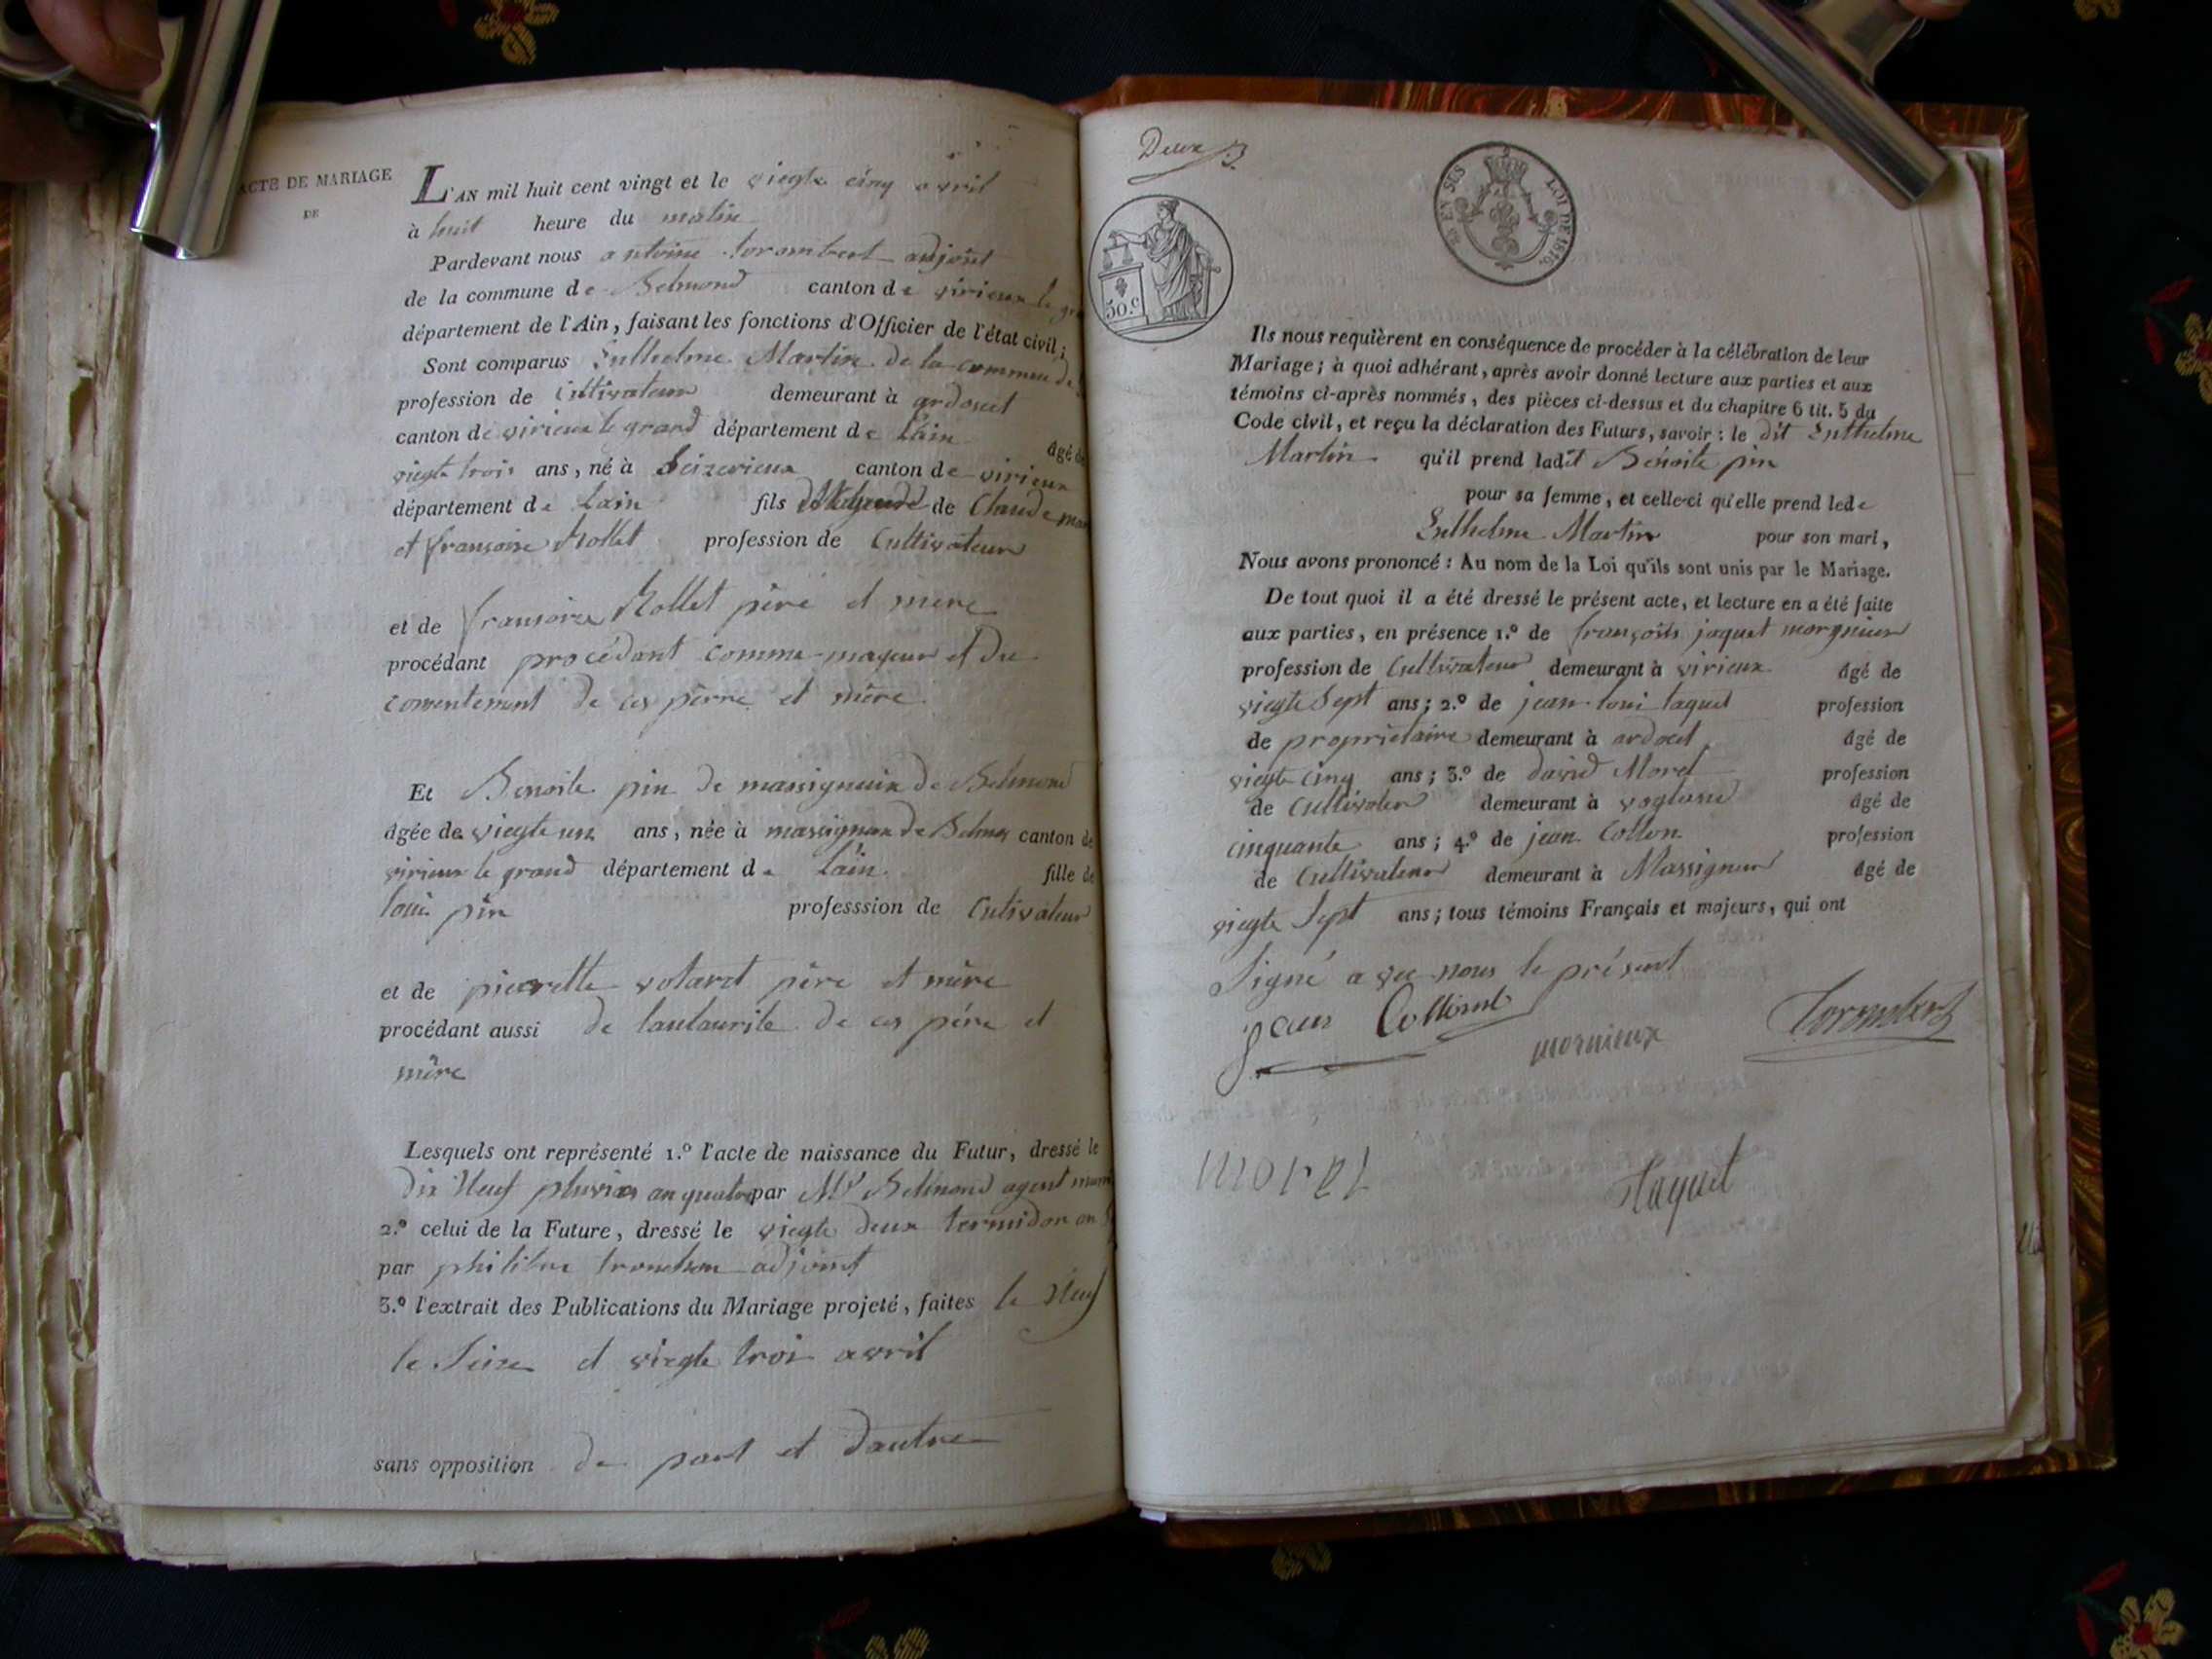 ACTE DE MARIAGE
DE
L'AN mil huit cent vingt et le viegte cinq avril
à huit heure du matin
Pardevant nous antoine torombert adjoint
de la commune de Belmond canton de virieux le gr
département de l'Ain, faisant les fonctions d'Officier de l'état civil;
Sont comparus Enthelme Martin de la commune de
profession de Cultivateur demeurant à ardosset
canton de virieux le grand département de Lain âgé de
viegte trois ans, né à Seizerieux canton de virieux
département de Lain fils de Claude mar
et françoise Rollet profession de Cultivateur
et de françoise Rollet père et mere
procédant procédant comme mageur et du
consentement de ces pèrre et mère
Et Benoite pin de massignieux de Belmond
âgée de viegte un ans, née à massignieux de Belmon canton de
virieux le grand département de Lain fille de
loui pin professsion de Cutivateur
et de pierrette votaret père et mère
procédant aussi de lautaurite de ces père et
mère
Lesquels ont représenté 1.º l'acte de naissance du Futur, dressé le
dix Neuf pluvios an quatre par Mr Belmond agent muni
2.º celui de la Future, dressé le viegte deux termidor an
par philibert tronchon adjoint
3.º l'extrait des Publications du Mariage projeté, faites le Neuf
le Seize et viegte trois avril
sans opposition de part et dautre
Deux
EN SES LOI DE 1816.
50.c
Ils nous requièrent en conséquence de procéder à la célébration de leur
Mariage; à quoi adhérant, après avoir donné lecture aux parties et aux
témoins ci-après nommés, des pièces ci-dessus et du chapitre 6 tit. 5 du
Code civil, et reçu la déclaration des Futurs, savoir: le dit Enthelme
Martin qu'il prend ladit Bénoite pin
pour sa femme, et celle-ci qu'elle prend lede
Enthelme Martin pour son mari,
Nous avons prononcé: Au nom de la Loi qu'ils sont unis par le Mariage.
De tout quoi il a été dressé le présent acte, et lecture en a été faite
aux parties, en présence 1.º de françois jaquet morgnieux
profession de Cultivateur demeurant à virieux âgé de
viegte Sept ans; 2.º de jean loui taquet profession
de proprietaire demeurant à ardoset âgé de
viegte cinq ans; 3.º de david Morel profession
de Cultivater demeurant à âgé de
cinquante ans; 4.º de jean Collon profession
de Cultivateur demeurant à Massignieux âgé de
viegte Sept ans; tous témoins Français et majeurs, qui ont
Signé avec nous le présent
jean Collomb
mornieux
torombert
morel
taquet